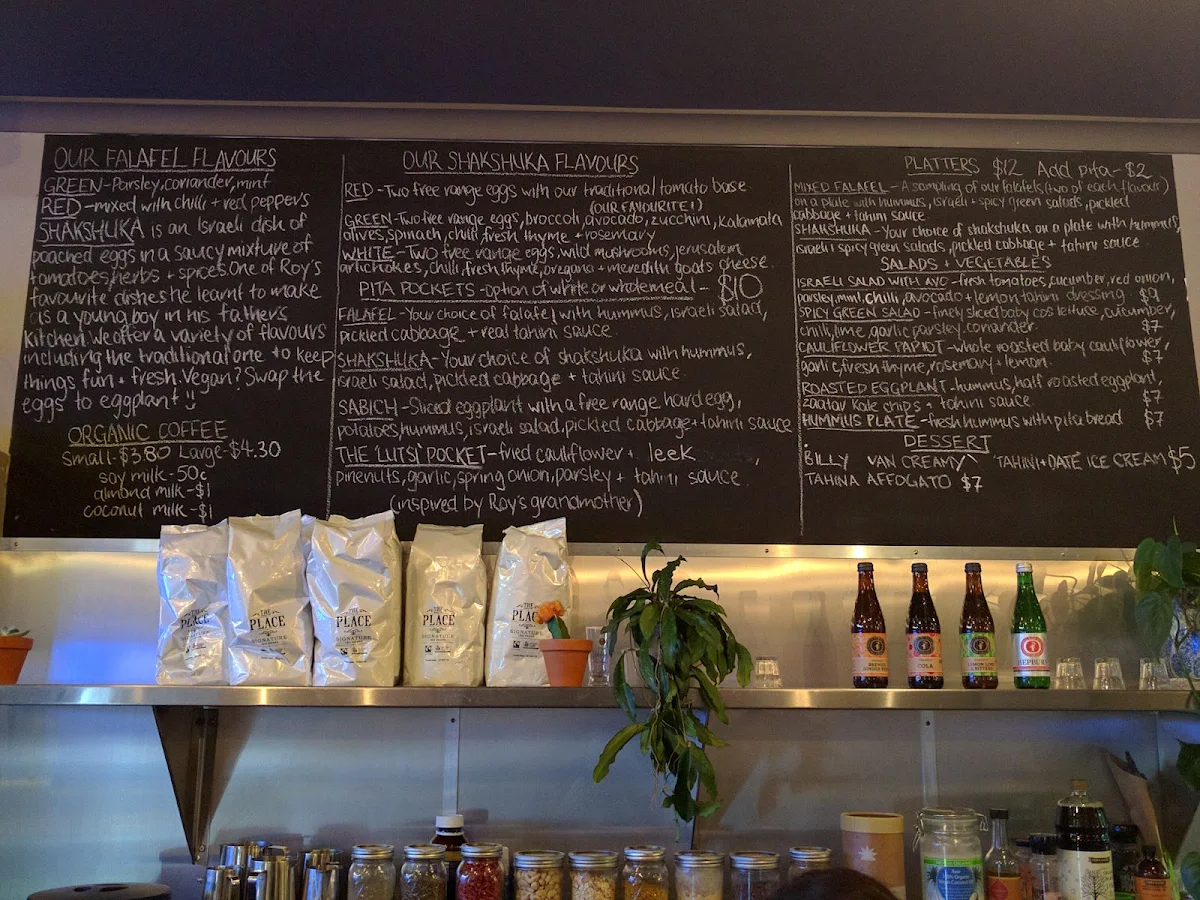 OUR FALAFEL FLAVOURS
GREEN - Parsley, coriander, mint
RED - mixed with chilli + red peppers
SHAKSHUKA is an Israeli dish of
poached eggs in a saucy mixture of
tomatoes, herbs + spices. One of Roy's
favourite dishes he learnt to make
is a young boy in his father's
kitchen. We offer a variety of flavours
including the traditional one to keep
things fun + fresh. Vegan? Swap the
eggs to eggplant
ORGANIC COFFEE
Small - $3.80 Large - $4.30
soy milk - 50c
almond milk - $1
coconut milk - $1
OUR SHAKSHUKA FLAVOURS
RED - Two free range eggs with our traditional tomato base
(OUR FAVOURITE!)
GREEN - Two free range eggs, broccoli, avocado, zucchini, Kalamata
olives, spinach, chilli, fresh thyme + rosemary
WHITE - Two free range eggs, wild mushrooms, jerusalem
artichokes, chilli, fresh thyme, oregano + meredith goats cheese.
PITA POCKETS - option of white or wholemeal - $10
FALAFEL - Your choice of falafel with hummus, israeli salad,
pickled cabbage + real tahini sauce.
SHAKSHUKA - Your choice of shakshuka with hummus,
israeli salad, pickled cabbage + tahini sauce.
SABICH - Sliced eggplant with a free range hard egg,
potatoes, hummus, israeli salad, pickled cabbage + tahini sauce
THE 'LUTSI' POCKET - fried cauliflower + leek
pinenuts, garlic, spring onion, parsley + tahini sauce
(inspired by Roy's grandmother)
PLATTERS $12 Add pita - $2
MIXED FALAFEL - A sampling of our falafels (two of each flavour)
on a plate with hummus, israeli + spicy green salads, pickled
cabbage + tahini sauce.
SHAKSHUKA - Your choice of shakshuka on a plate with hummus,
israeli spicy green salads, pickled cabbage + tahini sauce.
SALADS + VEGETABLES
ISRAELI SALAD WITH AVO - fresh tomatoes, cucumber, red onion,
parsley, mint, chilli, avocado + lemon tahini dressing $9
SPICY GREEN SALAD - finely sliced baby cos lettuce, cucumber,
chilli, lime, garlic, parsley, coriander. $7
CAULIFLOWER PAPIOT - whole roasted baby cauliflower,
garlic, fresh thyme, rosemary + lemon. $7
ROASTED EGGPLANT - hummus, half roasted eggplant,
zaatar kale chips + tahini sauce. $7
HUMMUS PLATE - fresh hummus with pita bread $7
DESSERT
BILLY VAN CREAMY TAHINI + DATE ICE CREAM $5
TAHINA AFFOGATO $7
THE PLACE
SIGNATURE
THE PLACE
SIGNATURE
THE PLACE
SIGNATURE
THE PLACE
SIGNATURE
THE PLACE
SIGNATURE
COLA
LEMON LIME
HEPBURN